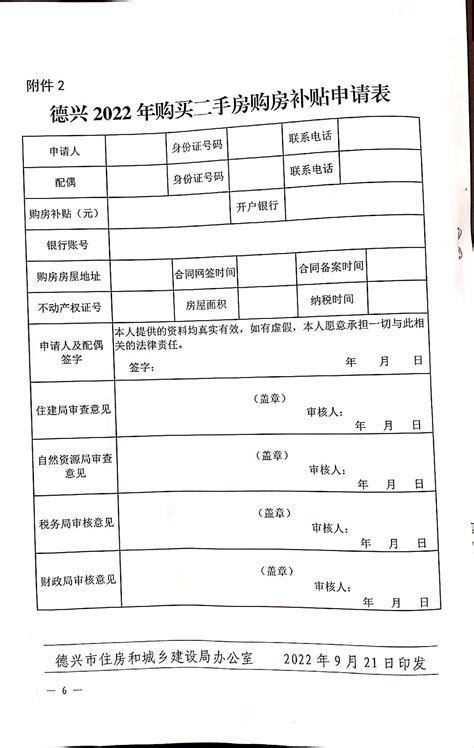 附件 2
德兴 2022 年购买二手房购房补贴申请表
申请人 身份证号码 联系电话
配偶 身份证号码 联系电话
购房补贴（元） 开户银行
银行账号
购房房屋地址 合同网签时间 合同备案时间
不动产权证号 房屋面积 纳税时间
申请人及配偶
签字
本人提供的资料均真实有效，如有虚假，本人愿意承担一切与此相
关的法律责任。
签字： 年 月 日
住建局审查意见
（盖章）
审核人：
年 月 日
自然资源局审查
意见
（盖章）
审核人：
年 月 日
税务局审核意见
（盖章）
审核人：
年 月 日
财政局审核意见
（盖章）
审核人：
年 月 日
德兴市住房和城乡建设局办公室 2022 年 9 月 21 日印发
— 6 —